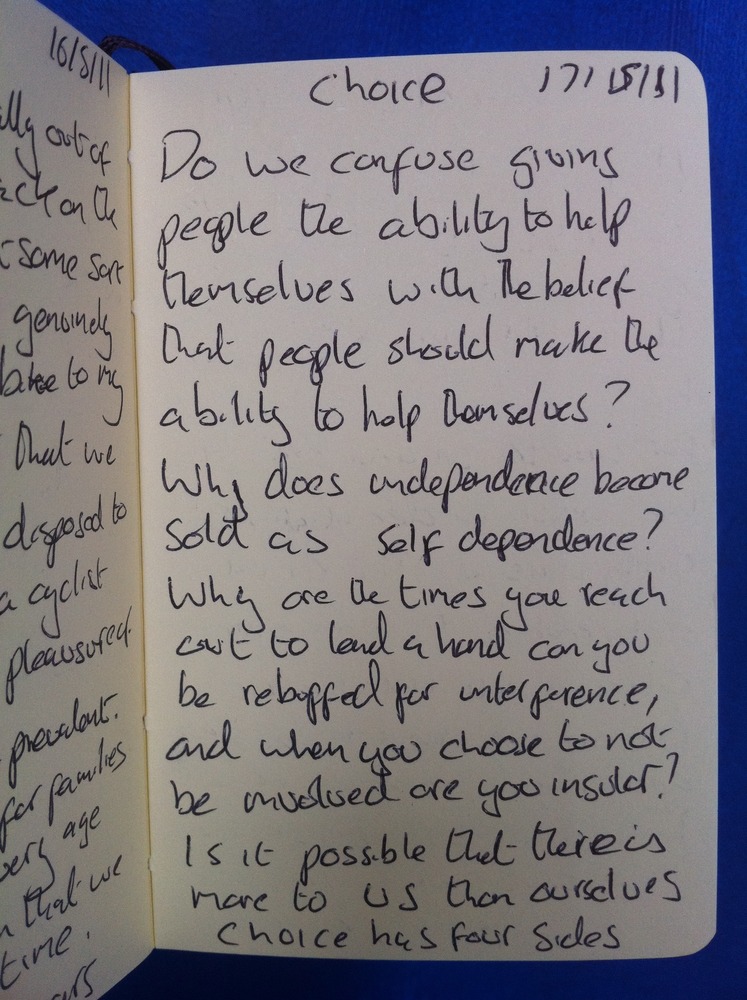 16/5/11
lly out of
ack on the
t some sort
genuinely
bike to my
that we
disposed to
a cyclist
pleasured
prevalent.
for families
very age
n that we
time.
ars
Choice 17/5/11
Do we confuse giving
people the ability to help
themselves with the belief
that people should make the
ability to help themselves?
Why does independence become
sold as self dependence?
Why are the times you reach
out to lend a hand can you
be rebuffed for interference,
and when you choose to not
be involved are you insular?
Is it possible that there is
more to us than ourselves
Choice has four sides